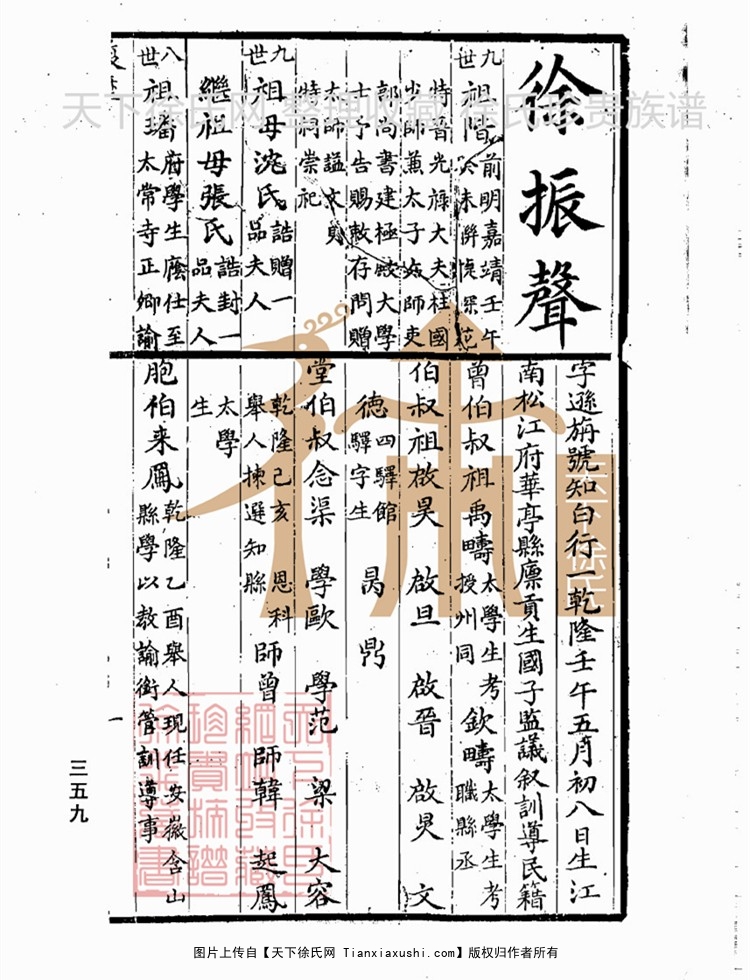 徐振聲
九世祖階 前明嘉靖壬午
癸未聯捷探
特晉光祿大夫柱國
少師兼太子太師吏
部尚書建極殿大學
士予告賜敕存問贈
太師諡文貞
特祠崇祀
九世祖母沈氏 誥贈一
品夫人
繼祖母張氏 誥封一
品夫人
八世祖璠 府學生廕仕至
太常寺正卿諭
字遜旃號知白行一乾隆壬午五月初八日生江
南松江府華亭縣廩貢生國子監議叙訓導民籍
曾伯叔祖禹疇 太學生考授州同 欽疇 太學生考職縣丞
伯叔祖啟昊 啟旦 啟晉 啟炅 文
德 四驛館驛字生 昺 鼎
堂伯叔念渠 學歐 學范 梁 大容
乾隆己亥 恩科舉人揀選知縣 師曾 師韓 起鳳
太學生
胞伯來鳳 乾隆乙酉舉人現任安徽含山
縣學以教諭銜管訓導事
一
三五九
天下徐氏网 整理收藏 徐氏珍贵族谱
天下徐氏
图片上传自【天下徐氏网 Tianxiaxushi.com】版权归作者所有